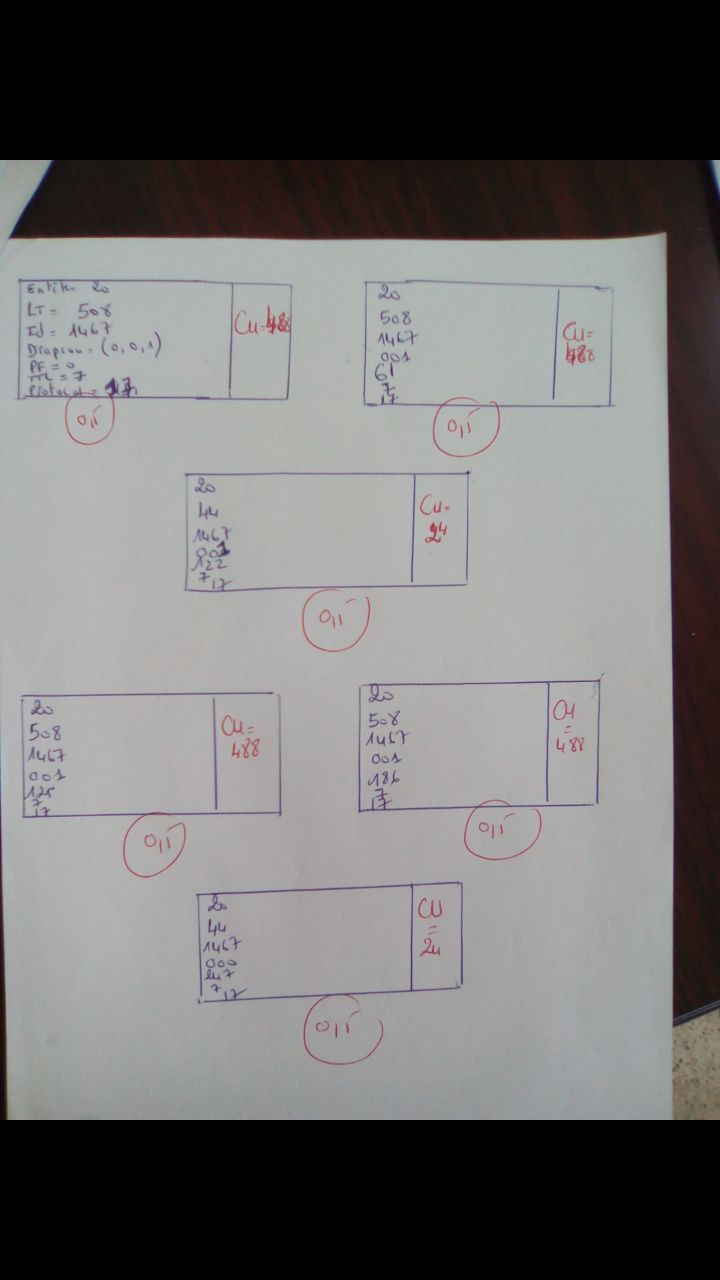 Entête 20
LT = 508
Id = 1467
Drapeau = (0, 0, 1)
PF = 0
TTL = 7
Protocol = 17
CU = 488
0,5
20
508
1467
001
61
7
17
CU =
488
0,5
20
44
1467
001
122
7 17
CU =
24
0,5
20
508
1467
001
125
7
17
CU =
488
0,5
20
508
1467
001
186
7
17
CU
=
488
0,5
20
44
1467
000
247
7 17
CU
=
24
0,5